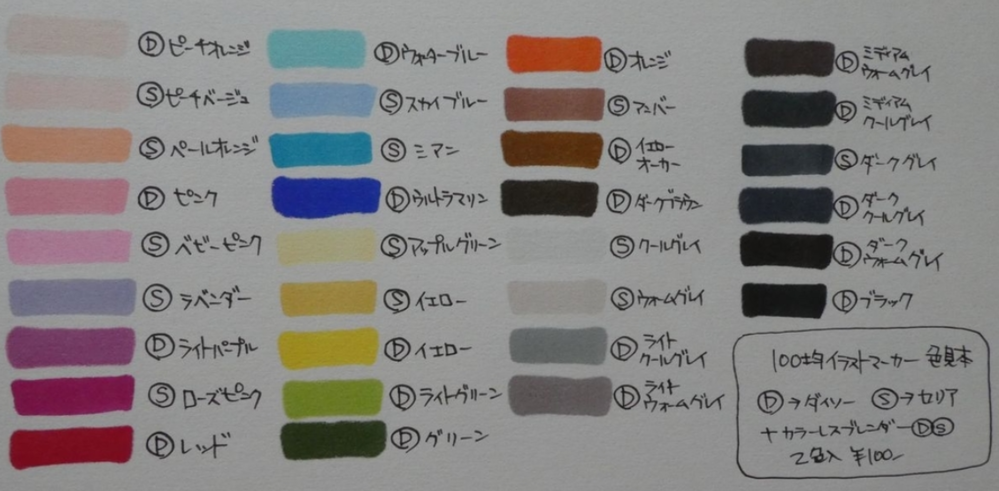 Ⓓピーチオレンジ
Ⓢピーチベージュ
Ⓢペールオレンジ
Ⓓピンク
Ⓢベビーピンク
Ⓢラベンダー
Ⓓライトパープル
Ⓢローズピンク
Ⓓレッド
Ⓓウォーターブルー
Ⓢスカイブルー
Ⓢミアン
Ⓓウルトラマリン
Ⓢアップルグリーン
Ⓢイエロー
Ⓓイエロー
Ⓓライトグリーン
Ⓓグリーン
Ⓓオレンジ
Ⓢアンバー
Ⓓイエロー
オーカー
Ⓓダークブラウン
Ⓢクールグレイ
Ⓢウォームグレイ
Ⓓライト
クールグレイ
Ⓓライト
ウォームグレイ
Ⓓミディアム
ウォームグレイ
Ⓓミディアム
クールグレイ
Ⓢダークグレイ
Ⓓダーク
クールグレイ
Ⓓダーク
ウォームグレイ
Ⓓブラック
100均イラストマーカー 色見本
Ⓓ→ダイソー Ⓢ→セリア
+カラーレスブレンダーⒹⓈ
2色入 ¥100-